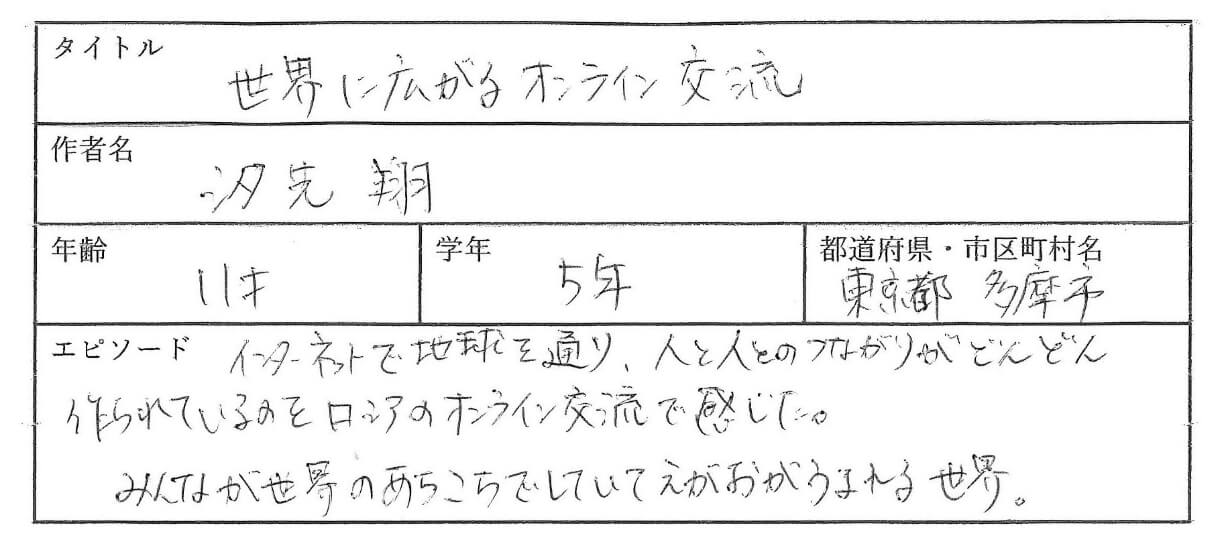 タイトル
世界に広がるオンライン交流
作者名
汐先 翔
年齢
11才
学年
5年
都道府県・市区町村名
東京都 多摩市
エピソード
インターネットで地球を通り、人と人とのつながりがどんどん
作られているのをロシアのオンライン交流で感じた。
みんなが世界のあちこちでしていてえがおがうまれる世界。